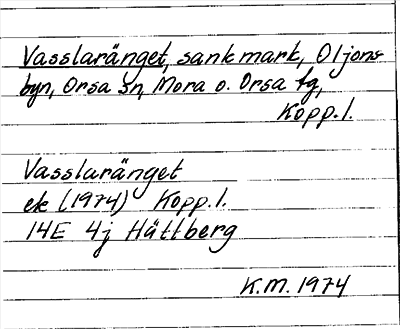 Vasslaränget, sank mark, Oljons-
byn, Orsa sn, Mora o. Orsa tg,
Kopp.l.
Vasslaränget
ek (1974) Kopp.l.
14E 4j Hättberg
K.M. 1974